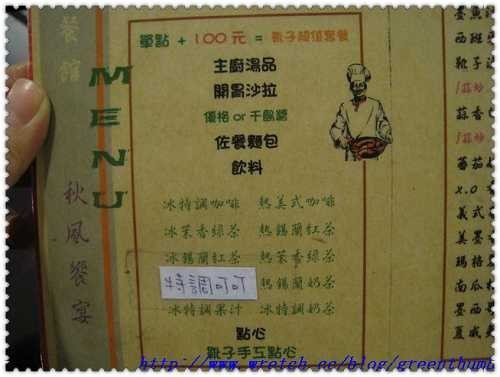 餐館
MENU
秋風餐宴
單點 + 100 元 = 靴子超值套餐
主廚湯品
開胃沙拉
優格 or 千島醬
佐餐麵包
飲料
冰特調咖啡 熱美式咖啡
冰茉香綠茶 熱錫蘭紅茶
冰錫蘭紅茶 熱茉香綠茶
特調可可 熱錫蘭奶茶
冰特調果汁 冰特調奶茶
點心
靴子手工點心
墨魚
西班
靴子
蒜香
蕃茄
X.O
義式
美墨
瑪格
南瓜
墨西
夏威
http://www.wretch.cc/blog/greenthumb